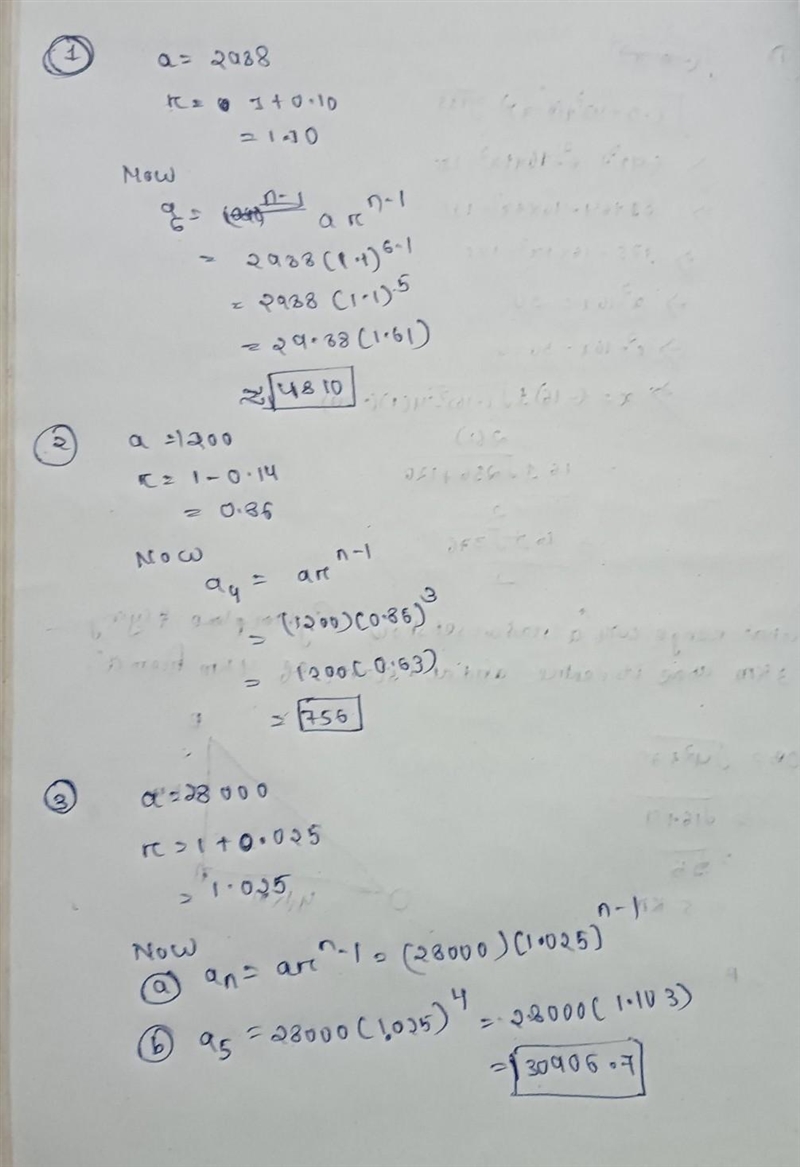 1 a = 2988
r = 1 + 0.10
= 1.10
Now
a6 = a r^n-1
= 2988 (1.1)^6-1
= 2988 (1.1)^5
= 29.88 (1.61)
≈ 4810
2 a = 1200
r = 1 - 0.14
= 0.86
Now
a4 = ar^n-1
= (1200)(0.86)^3
= 1200(0.63)
= 756
3 a = 28000
r = 1 + 0.025
= 1.025
Now
a an = ar^n-1 = (28000)(1.025)^n-1
b a5 = 28000(1.025)^4 = 28000(1.103)
= 30906.7